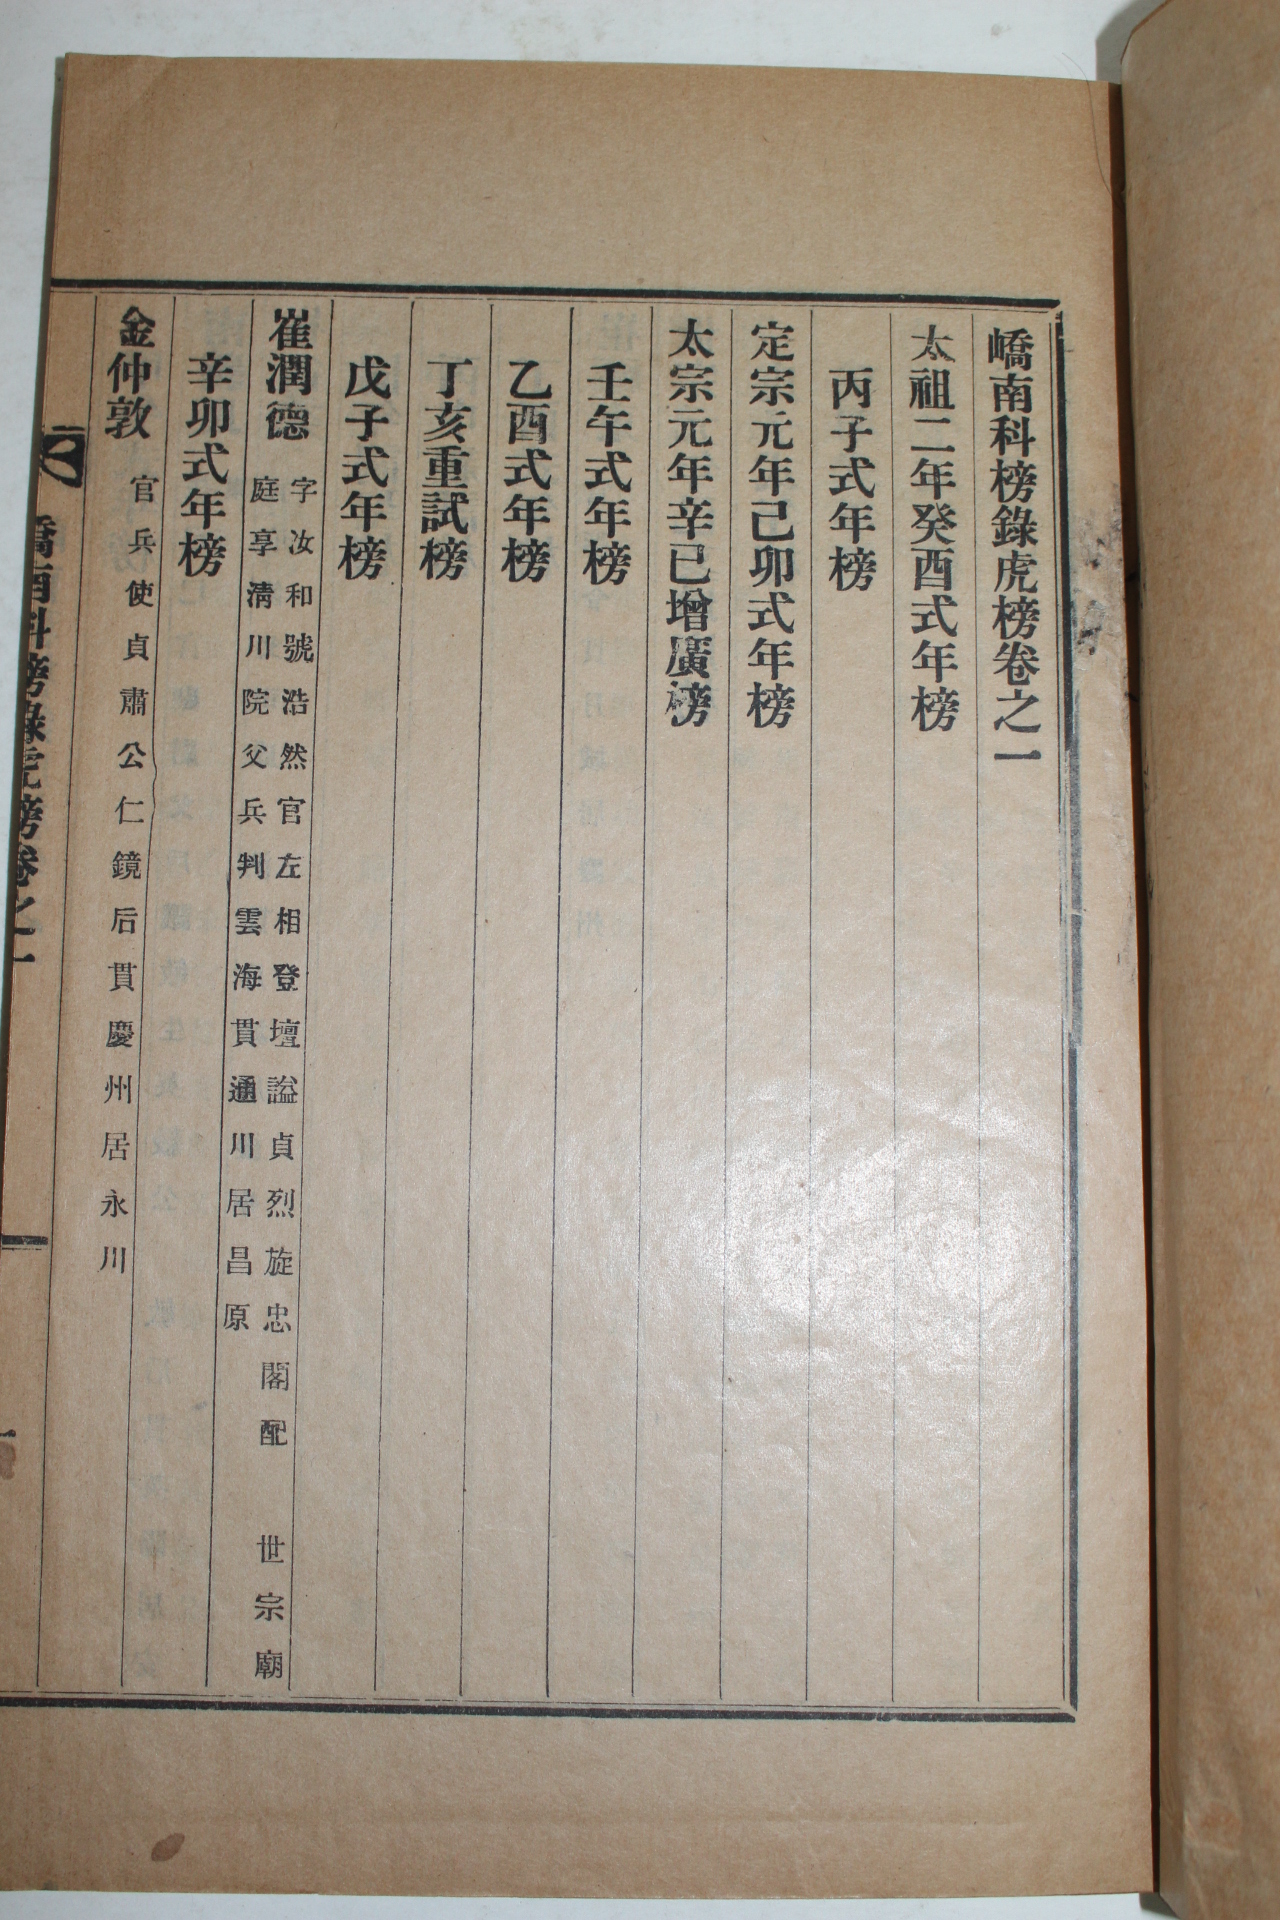 嶠南科榜錄虎榜卷之一
太祖二年癸酉式年榜
丙子式年榜
定宗元年己卯式年榜
太宗元年辛巳增廣榜
壬午式年榜
乙酉式年榜
丁亥重試榜
戊子式年榜
崔潤德
字汝和號浩然官左相登壇謚貞烈旋忠閣配 世宗廟
庭享淸川院父兵判雲海貫通川居昌原
辛卯式年榜
金仲敦
官兵使貞肅公仁鏡后貫慶州居永川
嶠南科榜錄虎榜卷之一
一